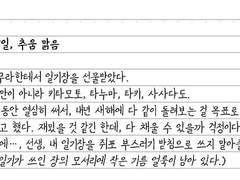 일, 추움 맑음
무라한테서 일기장을 선물받았다.
만이 아니라 키타모토, 타누마, 타키, 사사다도.
동안 열심히 써서, 내년 새해에 다 같이 돌려보는 걸 목표로
고 했다. 재밌을 것 같긴 한데, 다 채울 수 있을까 걱정이다
에…, 선생, 내 일기장을 쥐포 부스러기 받침으로 쓰지 말아줄
일기가 쓰인 장의 모서리에 작은 기름 얼룩이 남아 있다.)